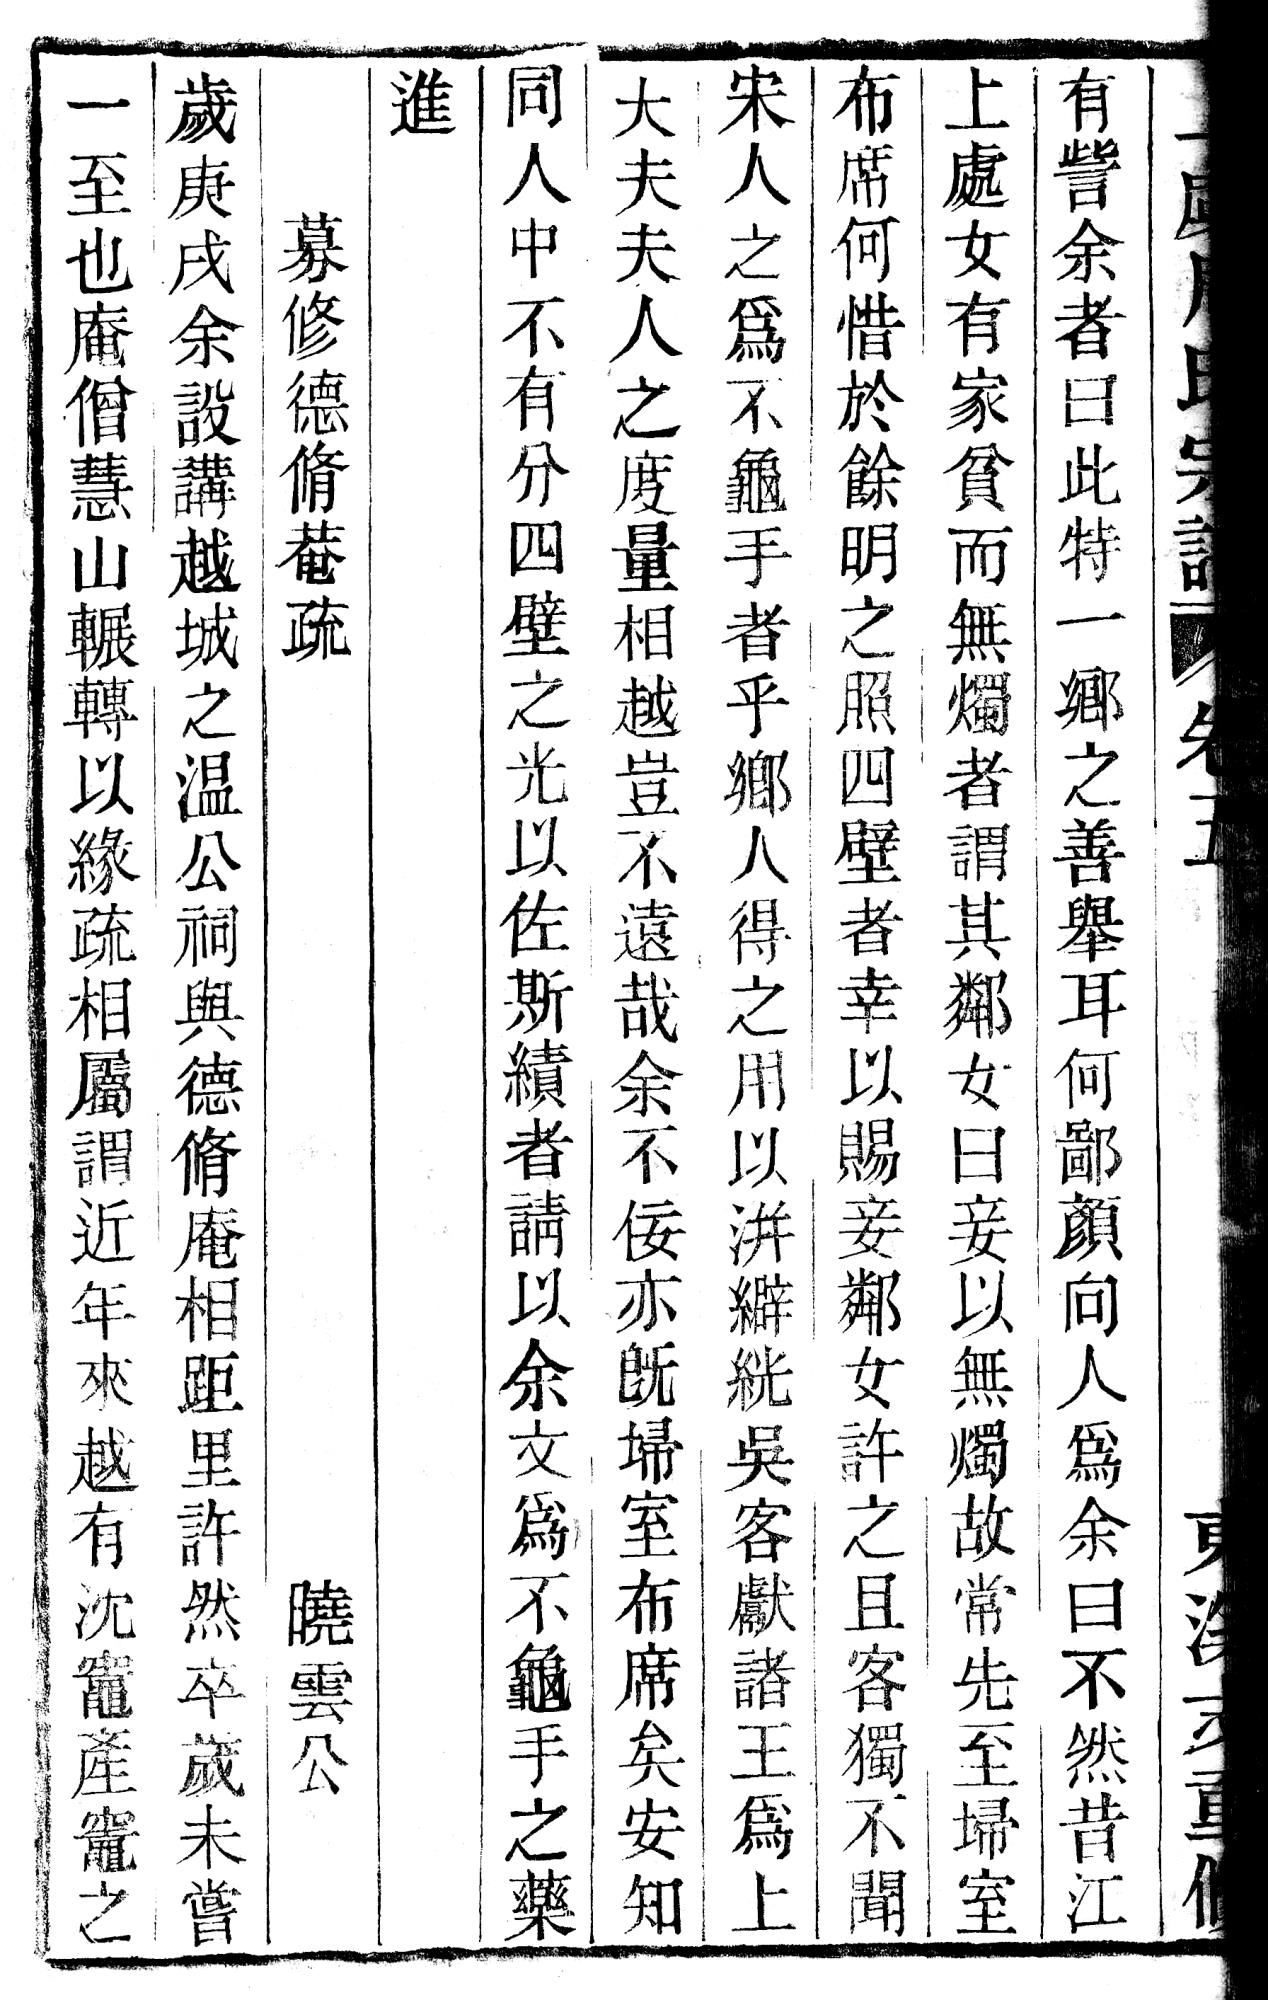 氏宗譜 卷五
有訾余者曰此特一鄉之善舉耳何鄙顏向人爲余曰不然昔江
上處女有家貧而無燭者謂其鄰女曰妾以無燭故常先至埽室
布席何惜於餘明之照四壁者幸以賜妾鄰女許之且客獨不聞
宋人之爲不龜手者乎鄉人得之用以洴澼絖吳客獻諸王爲上
大夫夫人之度量相越豈不遠哉余不佞亦旣埽室布席矣安知
同人中不有分四壁之光以佐斯績者請以余文爲不龜手之藥
進
募修德脩菴疏 曉雲公
歲庚戌余設講越城之温公祠與德脩庵相距里許然卒歲未嘗
一至也庵僧慧山輾轉以緣疏相屬謂近年來越有沈竈產鼃之